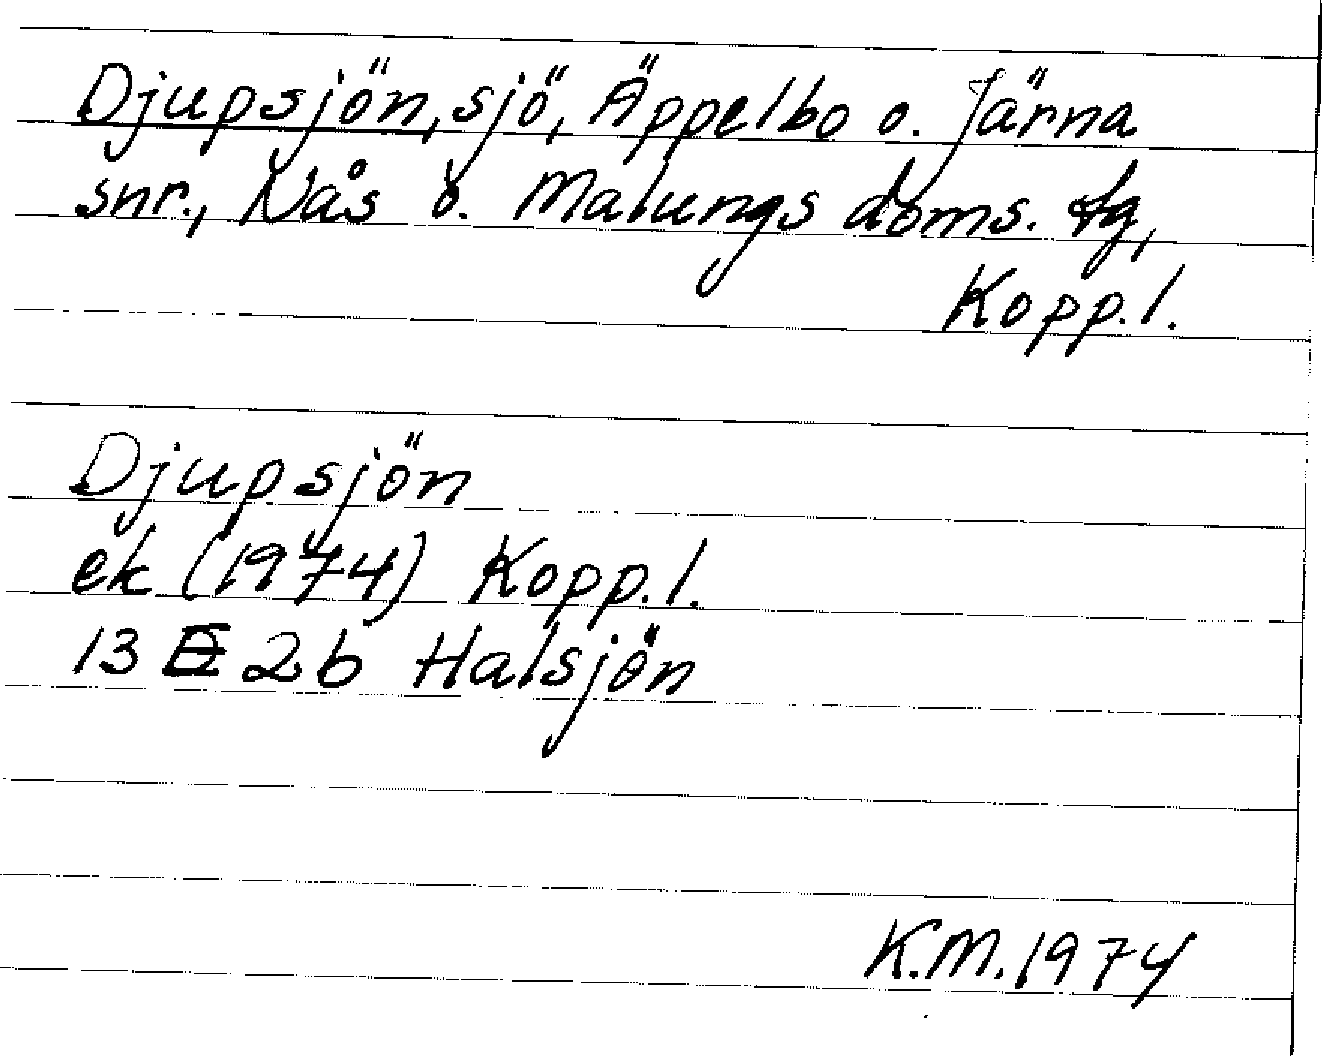 Djupsjön, sjö, Äppelbo o. Järna
snr., Nås o. Malungs doms. tg,
Kopp.l.
Djupsjön
ek (1974) Kopp.l.
13 E 2b Halsjön
K.M. 1974